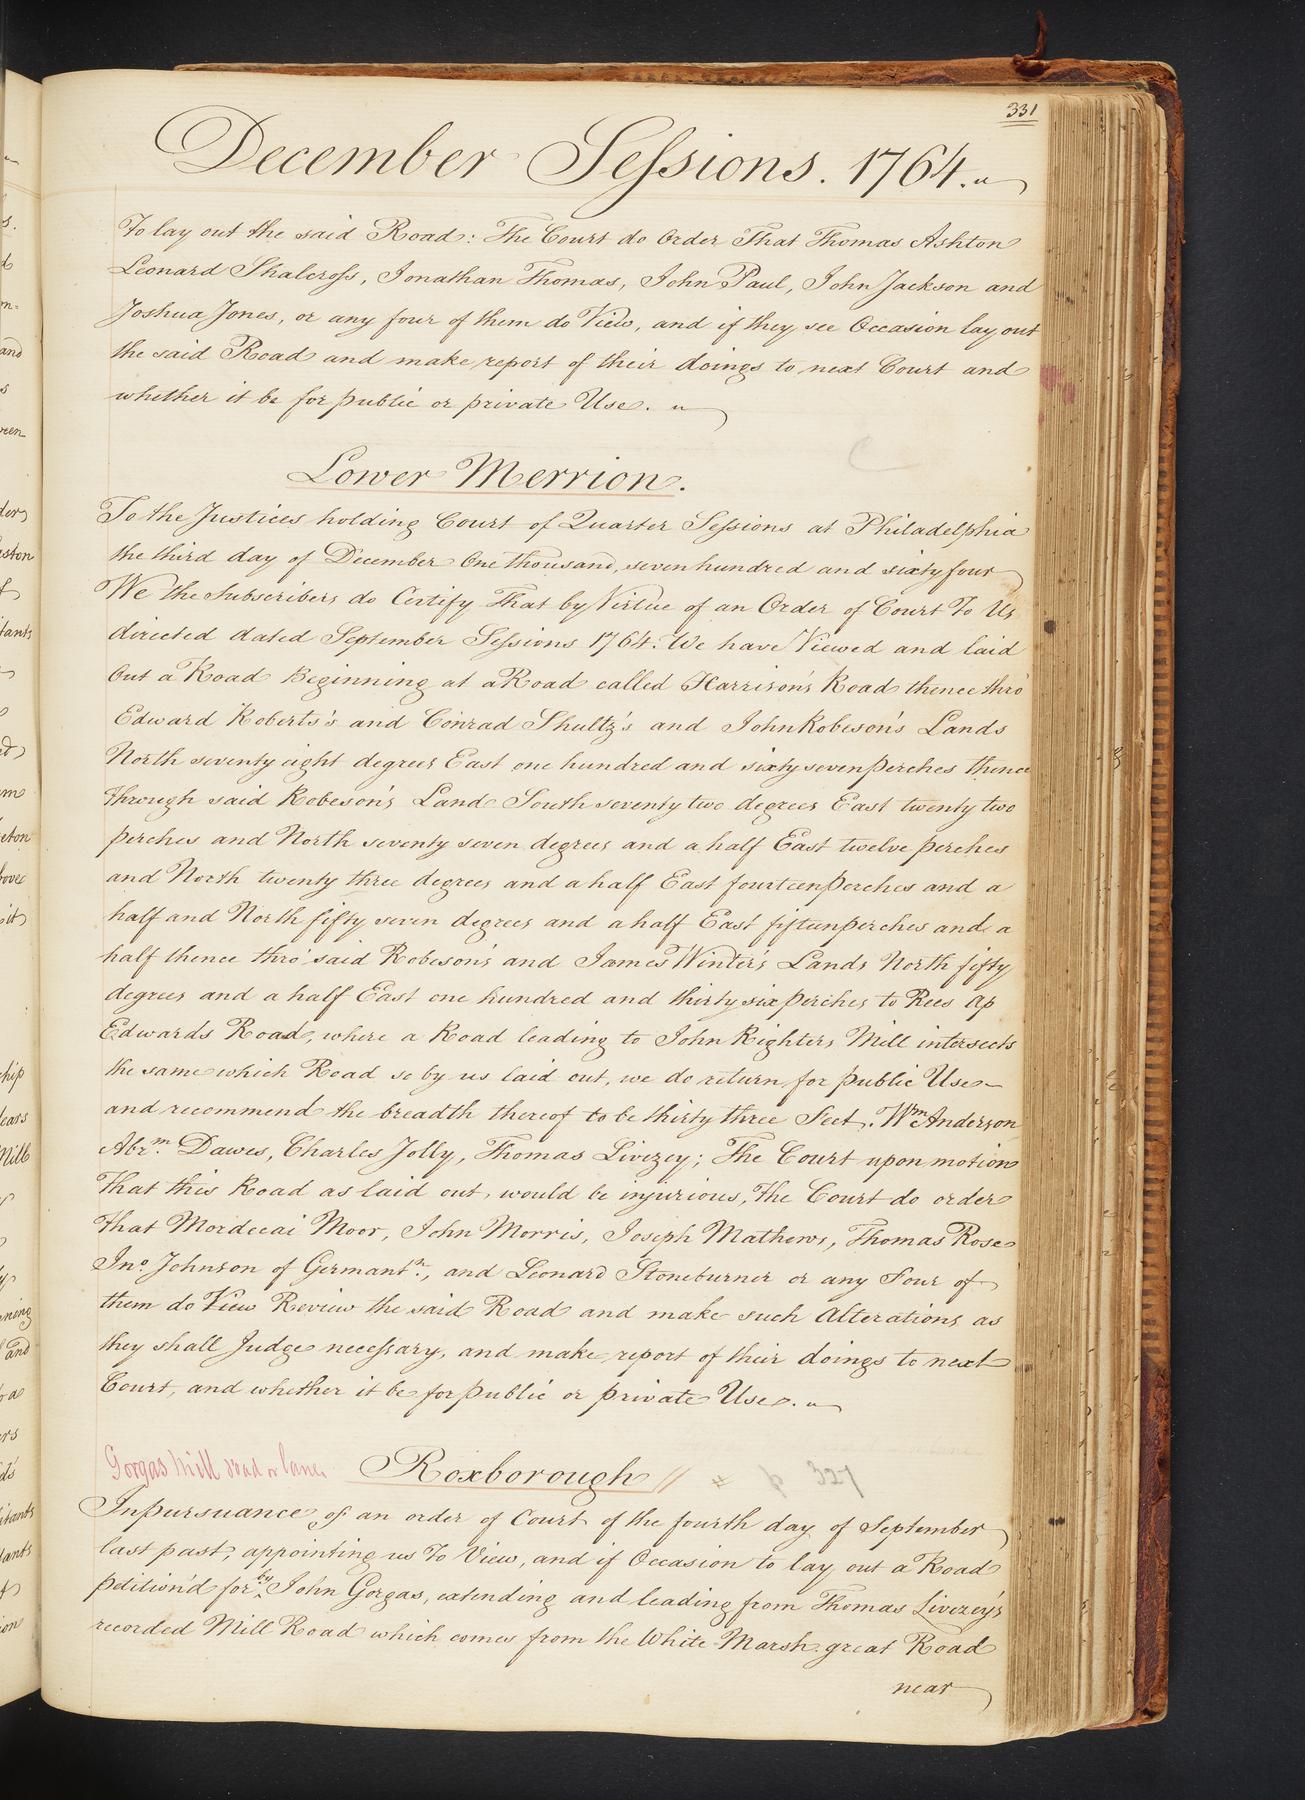 331
December Sessions. 1764.
To lay out the said Road: The Court do Order That Thomas Ashton
Leonard Shalcross, Jonathan Thomas, John Paul, John Jackson and
Joshua Jones, or any four of them do View, and if they see Occasion lay out
the said Road and make report of their doings to next Court and
whether it be for public or private Use.
Lower Merrion.
To the Justices holding Court of Quarter Sessions at Philadelphia
the third day of December One thousand, seven hundred and sixty four
We the subscribers do Certify That by Virtue of an Order of Court To Us
directed dated September Sessions 1764. We have Viewed and laid
Out a Road Beginning at a Road called Harrison's Road thence thro'
Edward Roberts's and Conrad Shultz's and John Robeson's Lands
North seventy eight degrees East one hundred and sixty seven perches thence
through said Robeson's Land South seventy two degrees East twenty two
perches and North seventy seven degrees and a half East twelve perches
and North twenty three degrees and a half East fourteen perches and a
half and North fifty seven degrees and a half East fifteen perches and a
half thence thro' said Robeson's and James Winter's Lands North fifty
degrees and a half East one hundred and thirty six perches to Rees Ap
Edwards Road, where a Road leading to John Righters Mill intersects
the same which Road so by us laid out, we do return for public Use
and recommend the breadth thereof to be thirty three Feet. Wm Anderson
Abrm. Dawes, Charles Jolly, Thomas Livezey; The Court upon motion
That this Road as laid out, would be injurious, The Court do order
that Mordecai Moor, John Morris, Joseph Mathews, Thomas Rose
Jno. Johnson of Germantn., and Leonard Stoneburner or any Four of
them do View Review the said Road and make such Alterations as
they shall Judge necessary, and make report of their doings to next
Court, and whether it be for public or private Use.
Gorgas Mill road or lane
Roxborough // # p 327
In pursuance of an order of Court of the fourth day of September
last past, appointing us To View, and if Occasion to lay out a Road
petition'd for by John Gorgas, extending and leading from Thomas Livezey's
recorded Mill Road which comes from the White-Marsh great Road
near